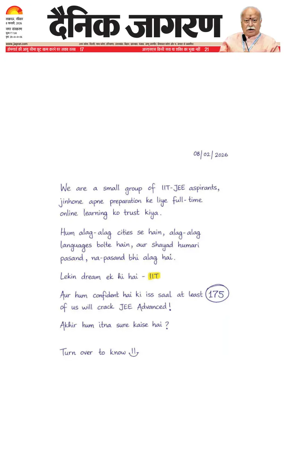 दैनिक जागरण
08/02/2026
We are a small group of IIT-JEE aspirants,
jinhone apne preparation ke liye full-time
online learning ko trust kiya.
Hum alag-alag cities se hain, alag-alag
languages bolte hain, aur shayad humari
pasand, na-pasand bhi alag hai.
Lekin dream ek hi hai - IIT
Aur hum confident hai ki iss saal at least 175
of us will crack JEE Advanced!
Akhir hum itna sure kaise hai?
Turn over to know !!